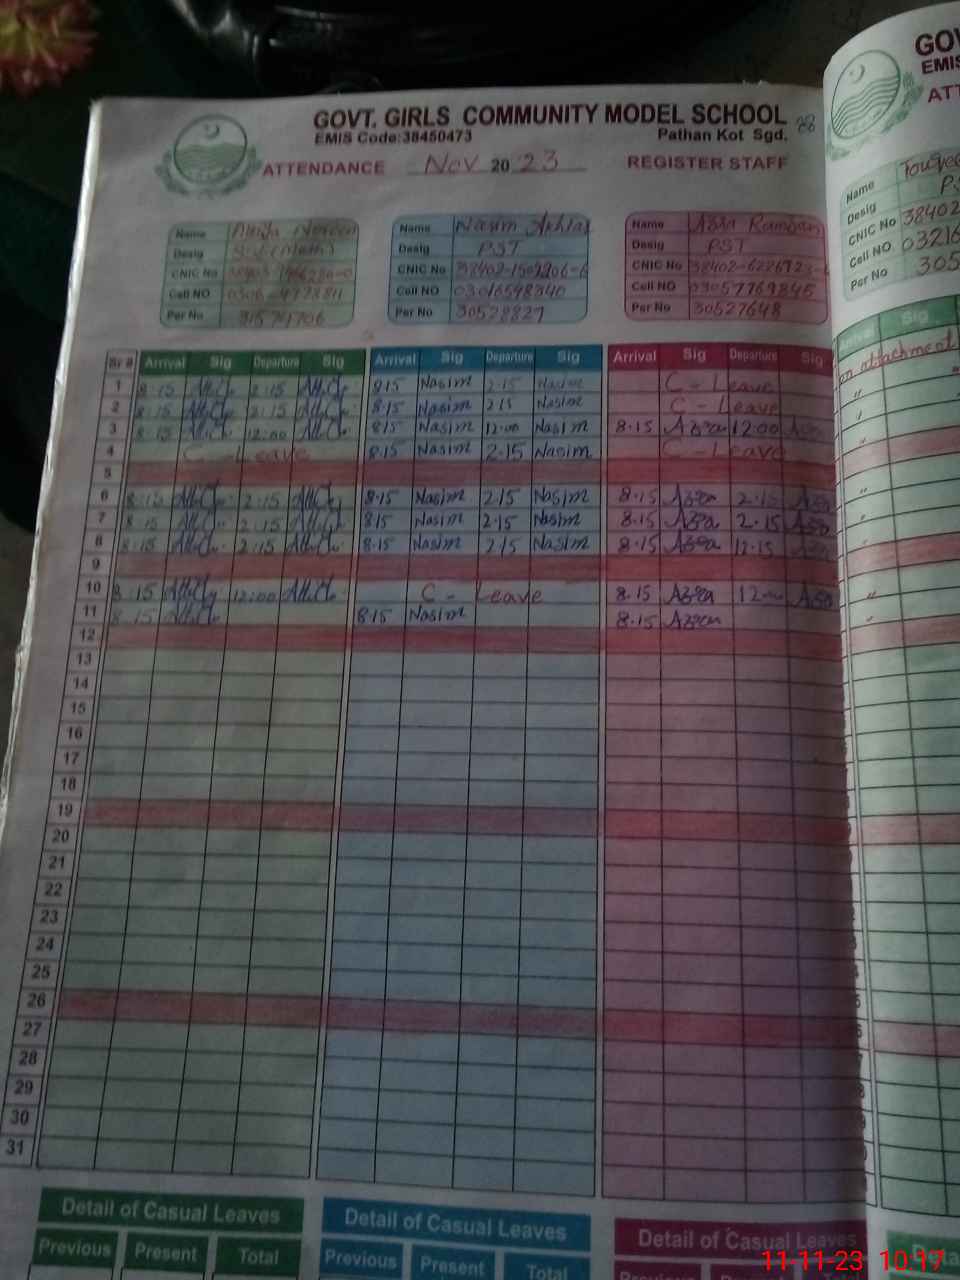 GOVT. GIRLS COMMUNITY MODEL SCHOOL 28
EMIS Code:38450473 Pathan Kot Sgd.
ATTENDANCE Nov 2023 REGISTER STAFF
Name
Desig
CNIC No
Cell NO
Per No
Name Nasim Akhtar
Desig PST
CNIC No
Cell NO 03016548340
Per No 30528827
Name Azra Ramzan
Desig PST
CNIC No
Cell NO 03057769845
Per No 30527648
Sr # Arrival Sig Departure Sig Arrival Sig Departure Sig Arrival Sig Departure Sig
1 8:15 2:15 8:15 Nasim 2:15 Nasim C - Leave
2 8:15 2:15 8:15 Nasim 2:15 Nasim C - Leave
3 8:15 12:00 8:15 Nasim 12:00 Nasim 8:15 Azra 12:00 Azra
4 C - Leave 8:15 Nasim 2:15 Nasim C - Leave
5
6 8:15 2:15 8:15 Nasim 2:15 Nasim 8:15 Azra 2:15 Azra
7 8:15 2:15 8:15 Nasim 2:15 Nasim 8:15 Azra 2:15 Azra
8 8:15 2:15 8:15 Nasim 2:15 Nasim 8:15 Azra 12:15 Azra
9
10 8:15 12:00 C - Leave 8:15 Azra 12:00 Azra
11 8:15 8:15 Nasim 8:15 Azra
12
13
14
15
16
17
18
19
20
21
22
23
24
25
26
27
28
29
30
31
Detail of Casual Leaves Detail of Casual Leaves Detail of Casual Leaves
Previous Present Total Previous Present Total
GOV
EMIS
ATT
Name
Desig PS
CNIC No 38402
Cell NO 03216
Per No 305
Arrival Sig
on attachment
11-11-23 10:17